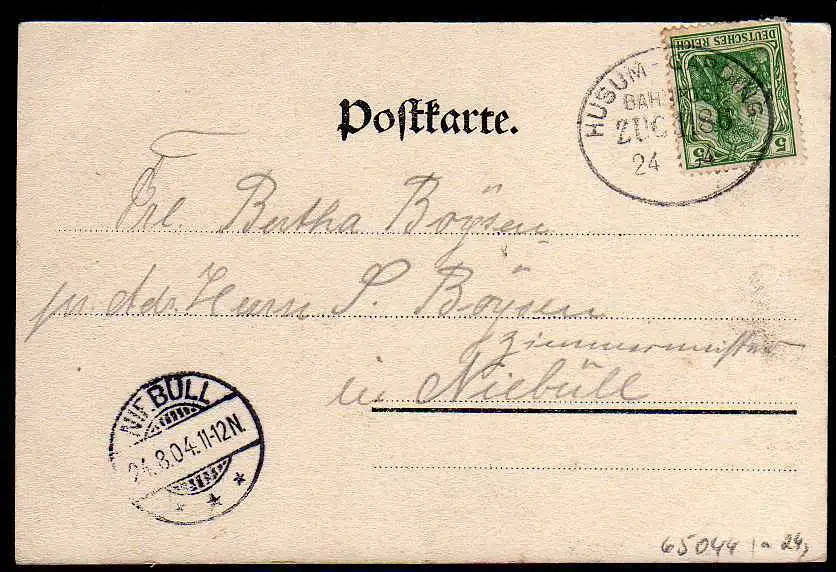 DEUTSCHES REICH
5 5
HUSUM
BAH
ZUG
24
Postkarte.
Frl. Bertha Boÿsen
pr. Adr. Herrn S. Boÿsen
Zimmermeister
in Niebüll
NIEBÜLL
24.8.04.11-12N.
65044 a 24,